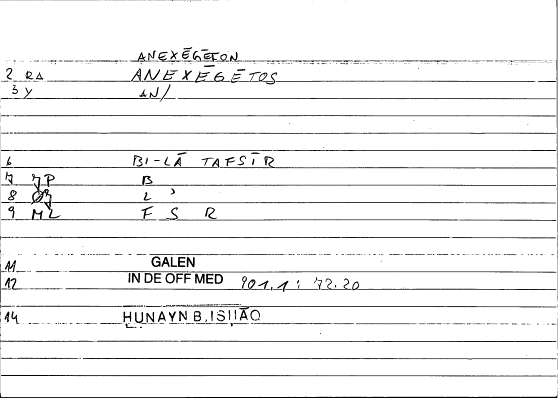 ANEXĒGĒTON
2 RA ANEXĒGĒTOS
3 Y AN/
6 BI-LĀ TAFSĪR
7 JP B
8 L ʾ
9 ML F S R
11 GALEN
12 IN DE OFF MED 901.1 : 72.20
14 HUNAYN B.ISḤĀQ